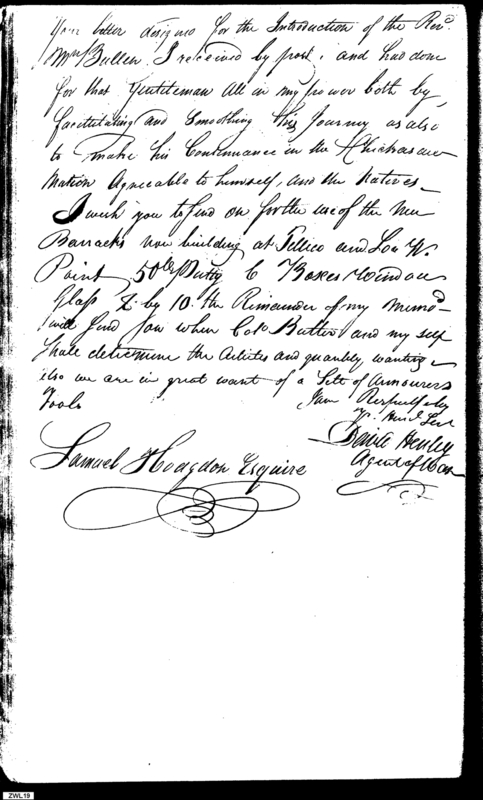 Your letter designed for the Introduction of the Revd.
Mr. Bullen I received by post, and had done
for that Gentleman all in my power both by
facilitating and smoothing his Journey as also
to make his Continuance in the Chickasaw
Nation Agreeable to himself, and the Natives
I wish you to send on for the use of the New
Barracks now building at Tellico and So. W.
Point 50 lb Putty 6 Boxes Window
Glass 8 by 10. the Remainder of my Memod
will send you when Colo. Butler and my self
shall determine the Articles and quantity wanting
also we are in great want of a Sett of Armourers
Tools
I am Respectfully
Yr. Hum'l Ser
David Henley
Agent of War
Samuel Hodgdon Esquire
ZWL19